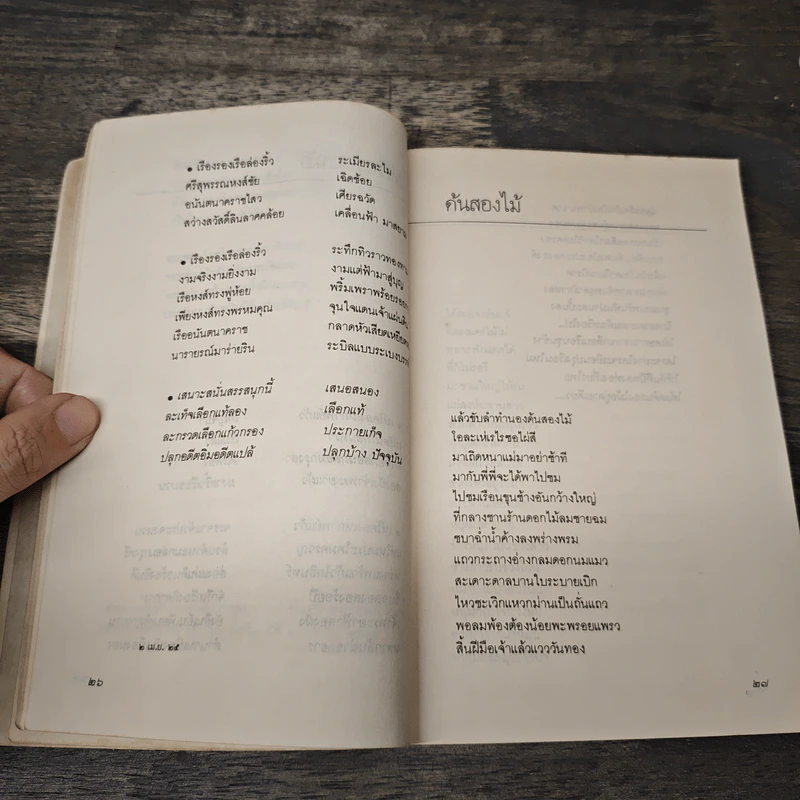 • เรืองรองเรือล่องริ้ว ระเมียรละไม
ศรีสุพรรณหงส์ชัย เฉิดช้อย
อนันตนาคราชไสว เศียรฉวัด
สว่างสวัสดิ์ลินลาศคล้อย เคลื่อนฟ้า มาสยาม
• เรืองรองเรือล่องริ้ว ระทึกทิวราวทอง
งามจริงงามยิ่งงาม งามแต่ฟ้ามาสู่บุญ
เรือหงส์ทรงพู่ห้อย พริ้มเพราพร้อย
เพียงหงส์ทรงพรหมคุณ จุนใจแดนเจ้าแผ่นดิน
เรืออนันตนาคราช กลาดหัวเสียดเหยียด
นารายรณ์มาร่ายริน ระบิลแบบระเบง
• เสนาะสนั่นสรรสนุกนี้ เสนอสนอง
ละเท็จเลือกแท้ลอง เลือกแท้
ละกรวดเลือกแก้วกรอง ประกายเก็จ
ปลุกอดีตอิ่มอดีตแปล้ ปลุกบ้าง ปัจจุบัน
๒ เม.ย. ๒๕
๒๖
ต้นสองไม้
แล้วขับลำทำนองต้นสองไม้
โอละเห่เรไรซอไผ่สี
มาเถิดหนาแม่มาอย่าช้าที
มากับพี่พี่จะได้พาไปชม
ไปชมเรือนขุนช้างอันกว้างใหญ่
ที่กลางชานร้านดอกไม้ลมชายฉม
ชบาฉ่ำน้ำค้างลงพร่างพรม
แถวกระถางอ่างกลมดอกนมแมว
สะเดาะดาลบานใบระบายเบิก
ไหวชะเวิกแหวกม่านเป็นถั่นแถว
พอลมพ้องต้องน้อยพะพรอยแพรว
สิ้นฝีมือเจ้าแล้วแวววันทอง
๒๗